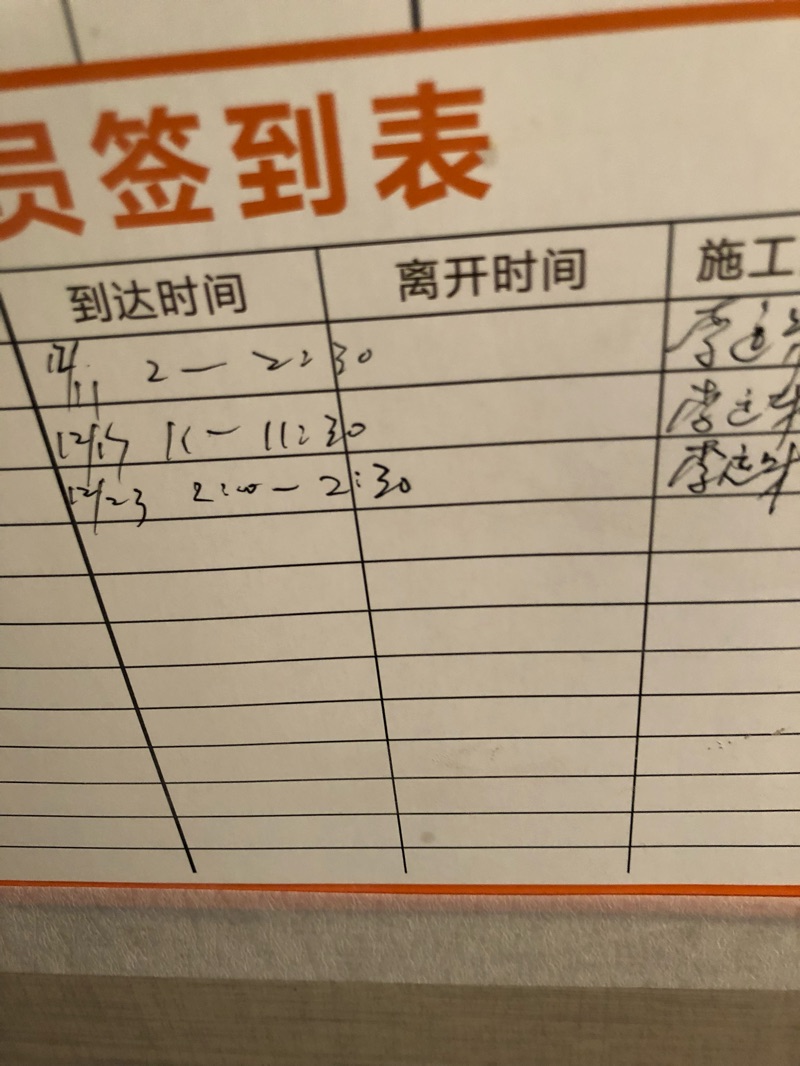 员签到表
到达时间 离开时间 施工
12/11 2 — 2:30
12/17 11 — 11:30
12/23 2:00 — 2:30